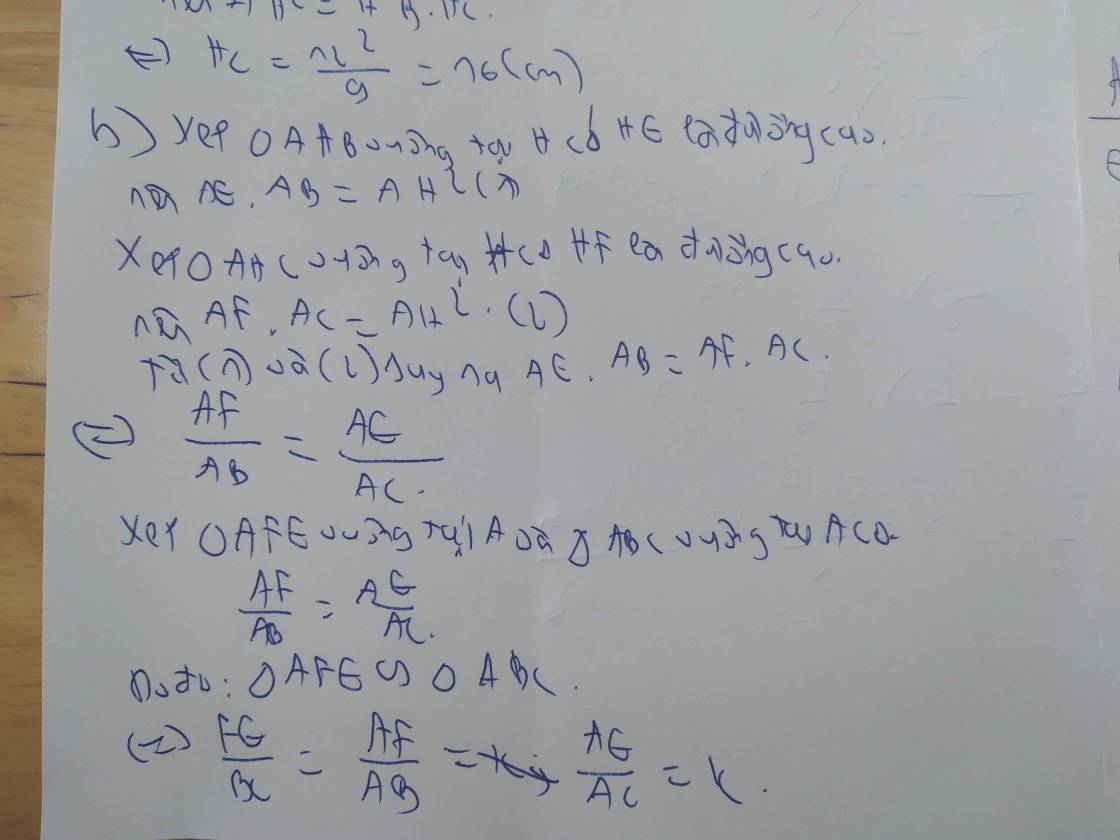 nên AH² = HB.HC.
⇔ HC = 12²/9 = 16(cm)
b) Xét △AHB vuông tại H có HE là đường cao.
nên AE.AB = AH² (1)
Xét △AHC vuông tại H có HF là đường cao.
nên AF.AC = AH². (2)
Từ (1) và (2) suy ra AE.AB = AF.AC.
⇔ AF/AB = AE/AC.
Xét △AFE vuông tại A và △ABC vuông tại A có
AF/AB = AE/AC.
Do đó: △AFE ∽ △ABC.
⇔ FE/BC = AF/AB = AE/AC = k.